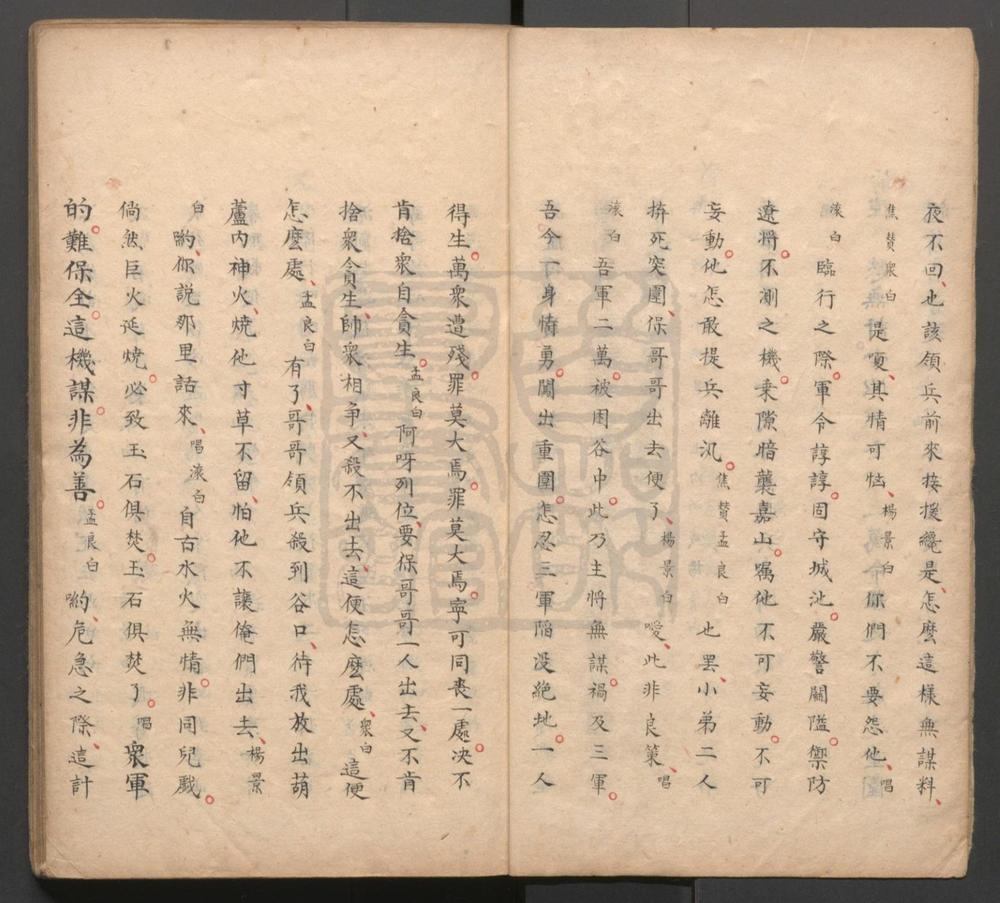 夜不回、也該領兵前來接援纔是、怎麼這樣無謀料、
焦贊衆白 是嗄、其情可惱、楊景白 你們不要怨他、唱
滚白 臨行之際。軍令諄諄。固守城池。嚴警關隘。禦防
遼將。不測之機。乘隙暗襲嘉山。囑他不可妄動。不可
妄動。他怎敢提兵離汛。焦贊孟良白 也罷、小弟二人
拚死突圍、保哥哥出去便了、楊景白 噯、此非良策、唱
滚白 吾軍二萬。被困谷中。此乃主將無謀。禍及三軍。
吾今一身猜勇。闖出重圍。怎忍三軍陷沒絶地。一人
得生。萬衆遭殘。罪莫大焉。罪莫大焉。寧可同喪一處。决不
肯捨衆自貪生。孟良白 阿呀列位、要保哥哥一人出去、又不肯
捨衆貪生、帥衆相争、又殺不出去、這便怎麼處、衆白 這便
怎麼處、孟良白 有了、哥哥領兵殺到谷口、待我放出葫
蘆内神火、燒他寸草不留、怕他不讓俺們出去、楊景
白 喲、你説那里話來、唱滚白 自古水火無情。非同兒戲。
倘然巨火延燒。必致玉石俱焚。玉石俱焚了。唱 衆軍
的。難保全。這機謀。非為善。孟良白 喲、危急之際、這計